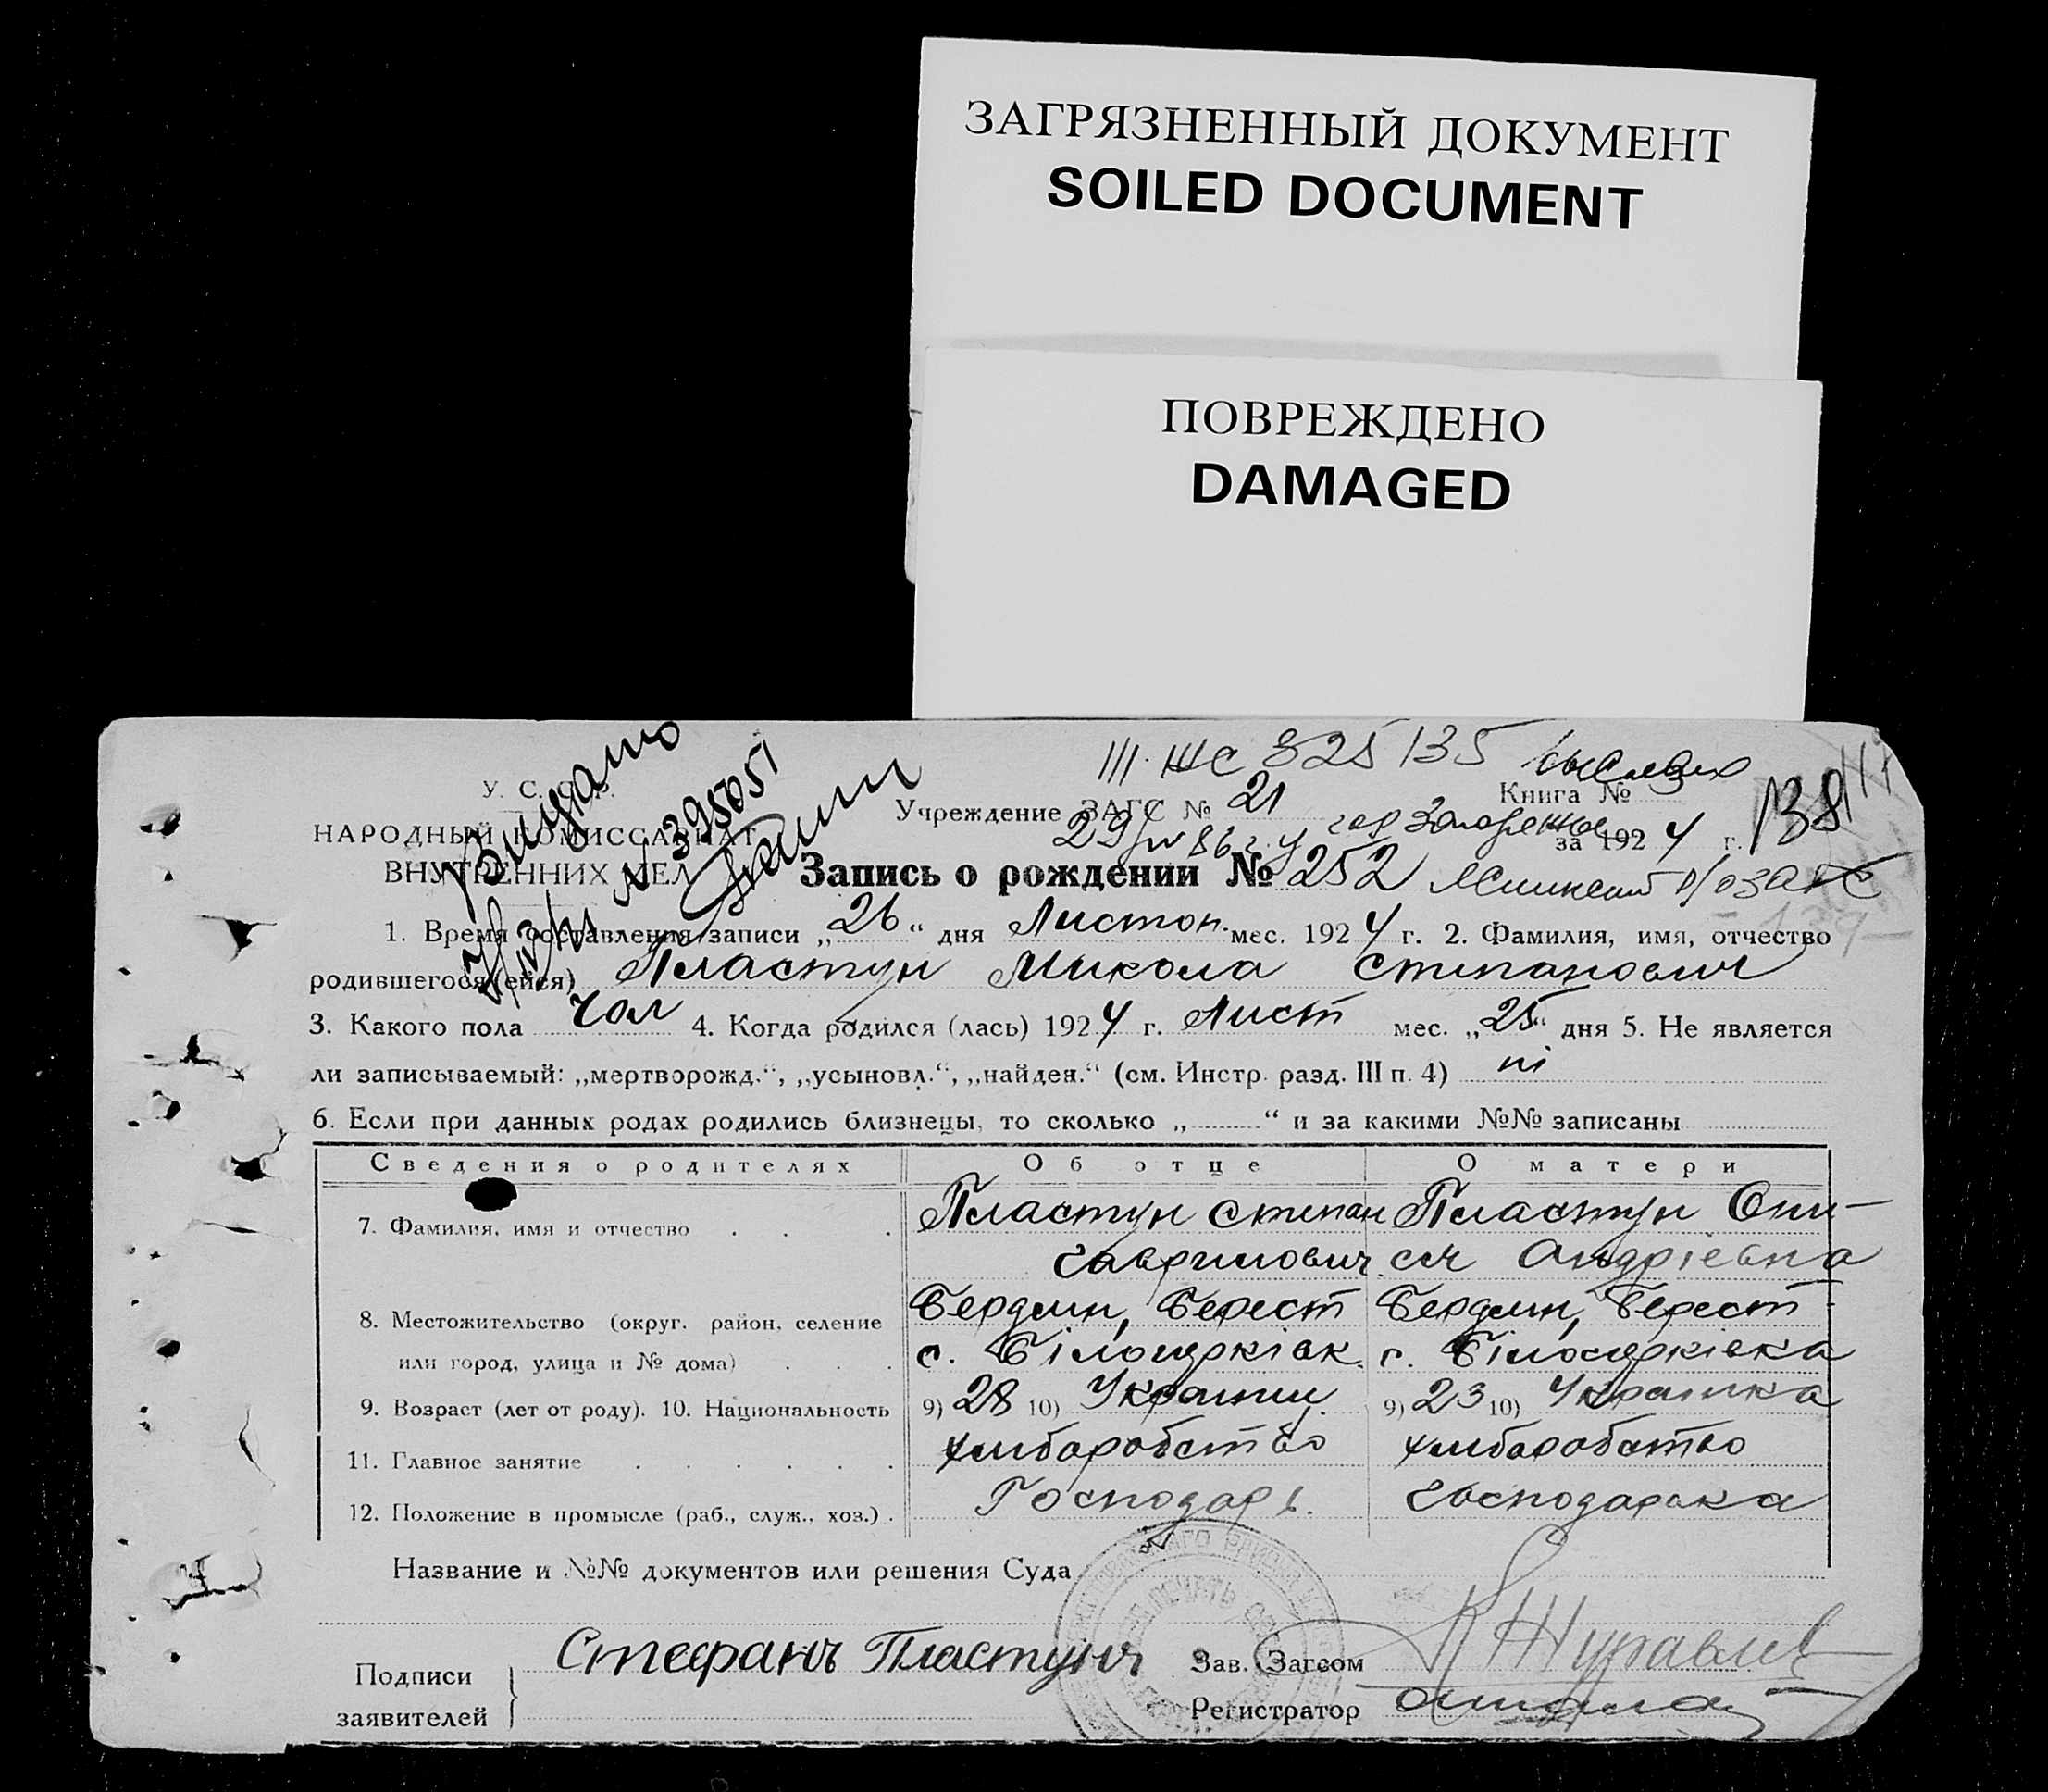 ЗАГРЯЗНЕННЫЙ ДОКУМЕНТ
SOILED DOCUMENT
ПОВРЕЖДЕНО
DAMAGED
III ЖС 825135
У. С. С. Р.
НАРОДНЫЙ КОМИССАРИАТ
ВНУТРЕННИХ ДЕЛ
Видано
№ 395051
Учреждение ЗАГС № 21
Книга №
за 1924 г.
138
Запись о рождении № 252
1. Время составления записи „26“ дня Листоп. мес. 1924 г. 2. Фамилия, имя, отчество
родившегося (ейся) Пластун Микола Степанович
3. Какого пола чол 4. Когда родился (лась) 1924 г. Лист мес. „25“ дня 5. Не является
ли записываемый: „мертворожд.“, „усыновл.“, „найден.“ (см. Инстр. разд. III п. 4) ні
6. Если при данных родах родились близнецы, то сколько „ “ и за какими №№ записаны
Сведения о родителях Об отце О матери
7. Фамилия, имя и отчество Пластун Степан Гаврилович Пластун Они- Андріевна
8. Местожительство (округ. район, селение Бердян, Берест Бердян, Берест
или город, улица и № дома) с. Білоцерківк. с. Білоцерківка
9. Возраст (лет от роду). 10. Национальность 9) 28 10) Украинц. 9) 23 10) Украинка
11. Главное занятие хліборобство хліборобство
12. Положение в промысле (раб., служ., хоз.) Господарь. господарька
Название и №№ документов или решения Суда
Подписи заявителей Стефанъ Пластунъ
Зав. Загсом Журавлев
Регистратор